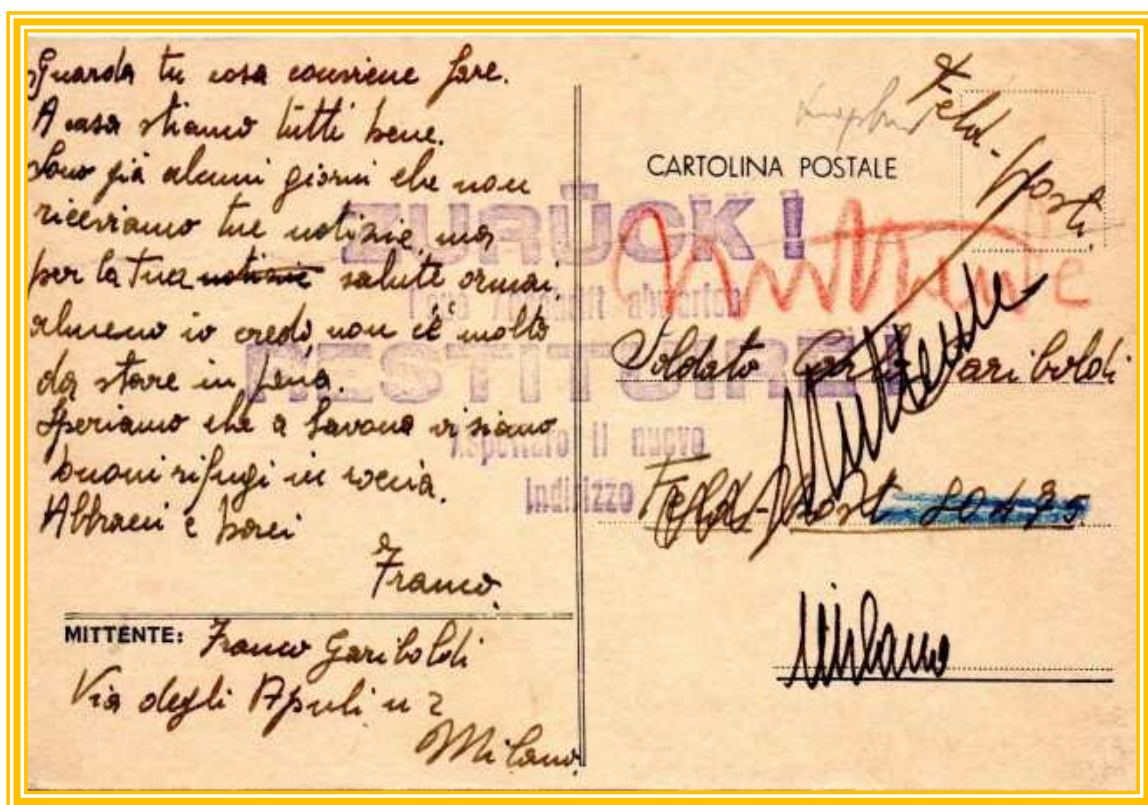 Guarda tu cosa conviene fare.
A casa stiamo tutti bene.
Sono già alcuni giorni che non
riceviamo tue notizie, ma
per la tua notizie salute ormai,
almeno io credo, non c'è molto
da stare in pena.
Speriamo che a Savona vi siano
buoni rifugi in roccia.
Abbracci e baci
Franco.
MITTENTE: Franco Gariboldi
Via degli Apuli n 2
Milano.
Feld-Post.
CARTOLINA POSTALE
ZURÜCK!
Neue Anschrift abwarten
RESTITUIRE!
Aspettare il nuovo
indirizzo
Mittente
Soldato Carlo Gariboldi
Mittente
Feld-Post 80475
Milano